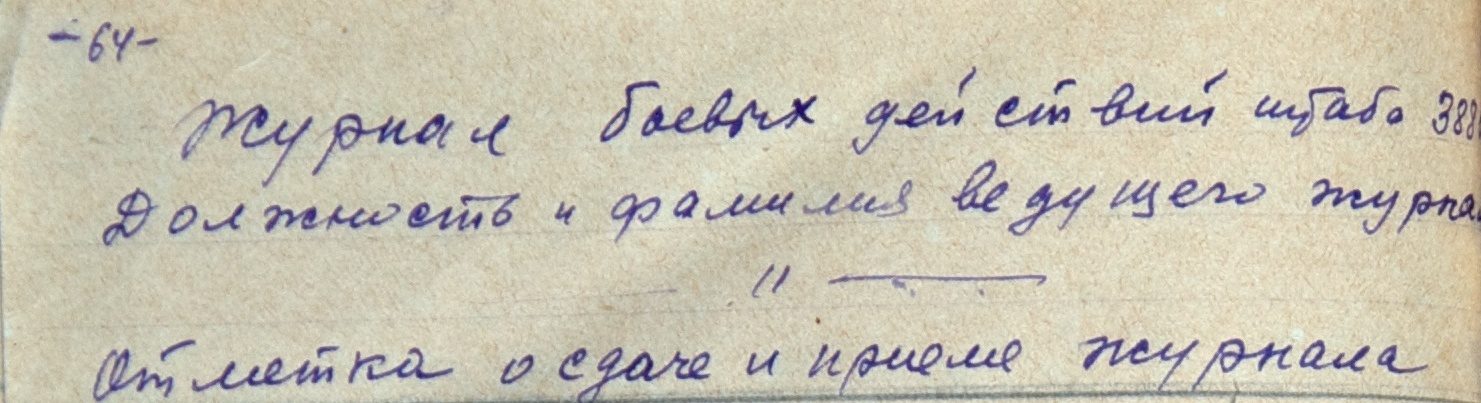 -64-
Журнал боевых действий штаба 388
Должность и фамилия ведущего журна
" —
Отметка о сдаче и приеме журнала